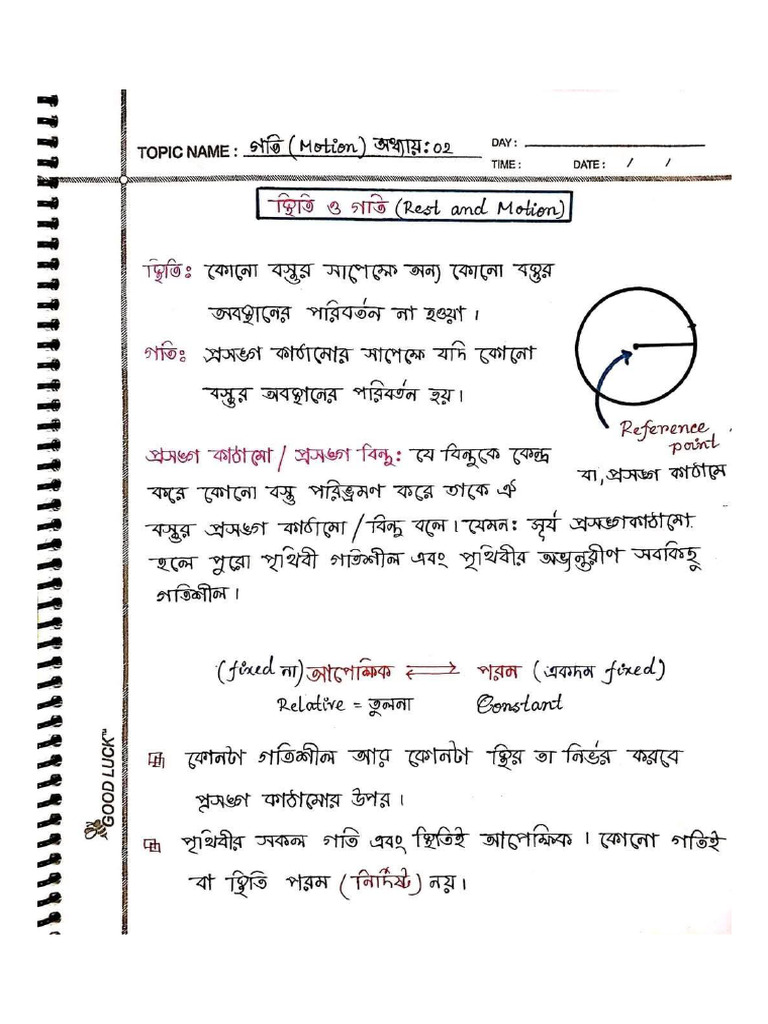 TOPIC NAME : গতি (Motion) অধ্যায়ঃ 02
DAY :
TIME : DATE : / /
স্থিতি ও গতি (Rest and Motion)
স্থিতিঃ কোনো বস্তুর সাপেক্ষে অন্য কোনো বস্তুর
অবস্থানের পরিবর্তন না হওয়া ।
গতিঃ প্রসঙ্গ কাঠামোর সাপেক্ষে যদি কোনো
বস্তুর অবস্থানের পরিবর্তন হয়।
Reference
point
বা, প্রসঙ্গ কাঠামে
প্রসঙ্গ কাঠামো / প্রসঙ্গ বিন্দু: যে বিন্দুকে কেন্দ্র
করে কোনো বস্তু পরিভ্রমণ করে তাকে ঐ
বস্তুর প্রসঙ্গ কাঠামো / বিন্দু বলে । যেমন: সূর্য প্রসঙ্গকাঠামো
হলে পুরো পৃথিবী গতিশীল এবং পৃথিবীর অভ্যন্তরীণ সবকিছু
গতিশীল ।
(fixed না) আপেক্ষিক ⟷ পরম (একদম fixed)
Relative = তুলনা Constant
কোনটা গতিশীল আর কোনটা স্থির তা নির্ভর করবে
প্রসঙ্গ কাঠামোর উপর ।
পৃথিবীর সকল গতি এবং স্থিতিই আপেক্ষিক । কোনো গতিই
বা স্থিতি পরম (নির্দিষ্ট) নয়।
GOOD LUCK™